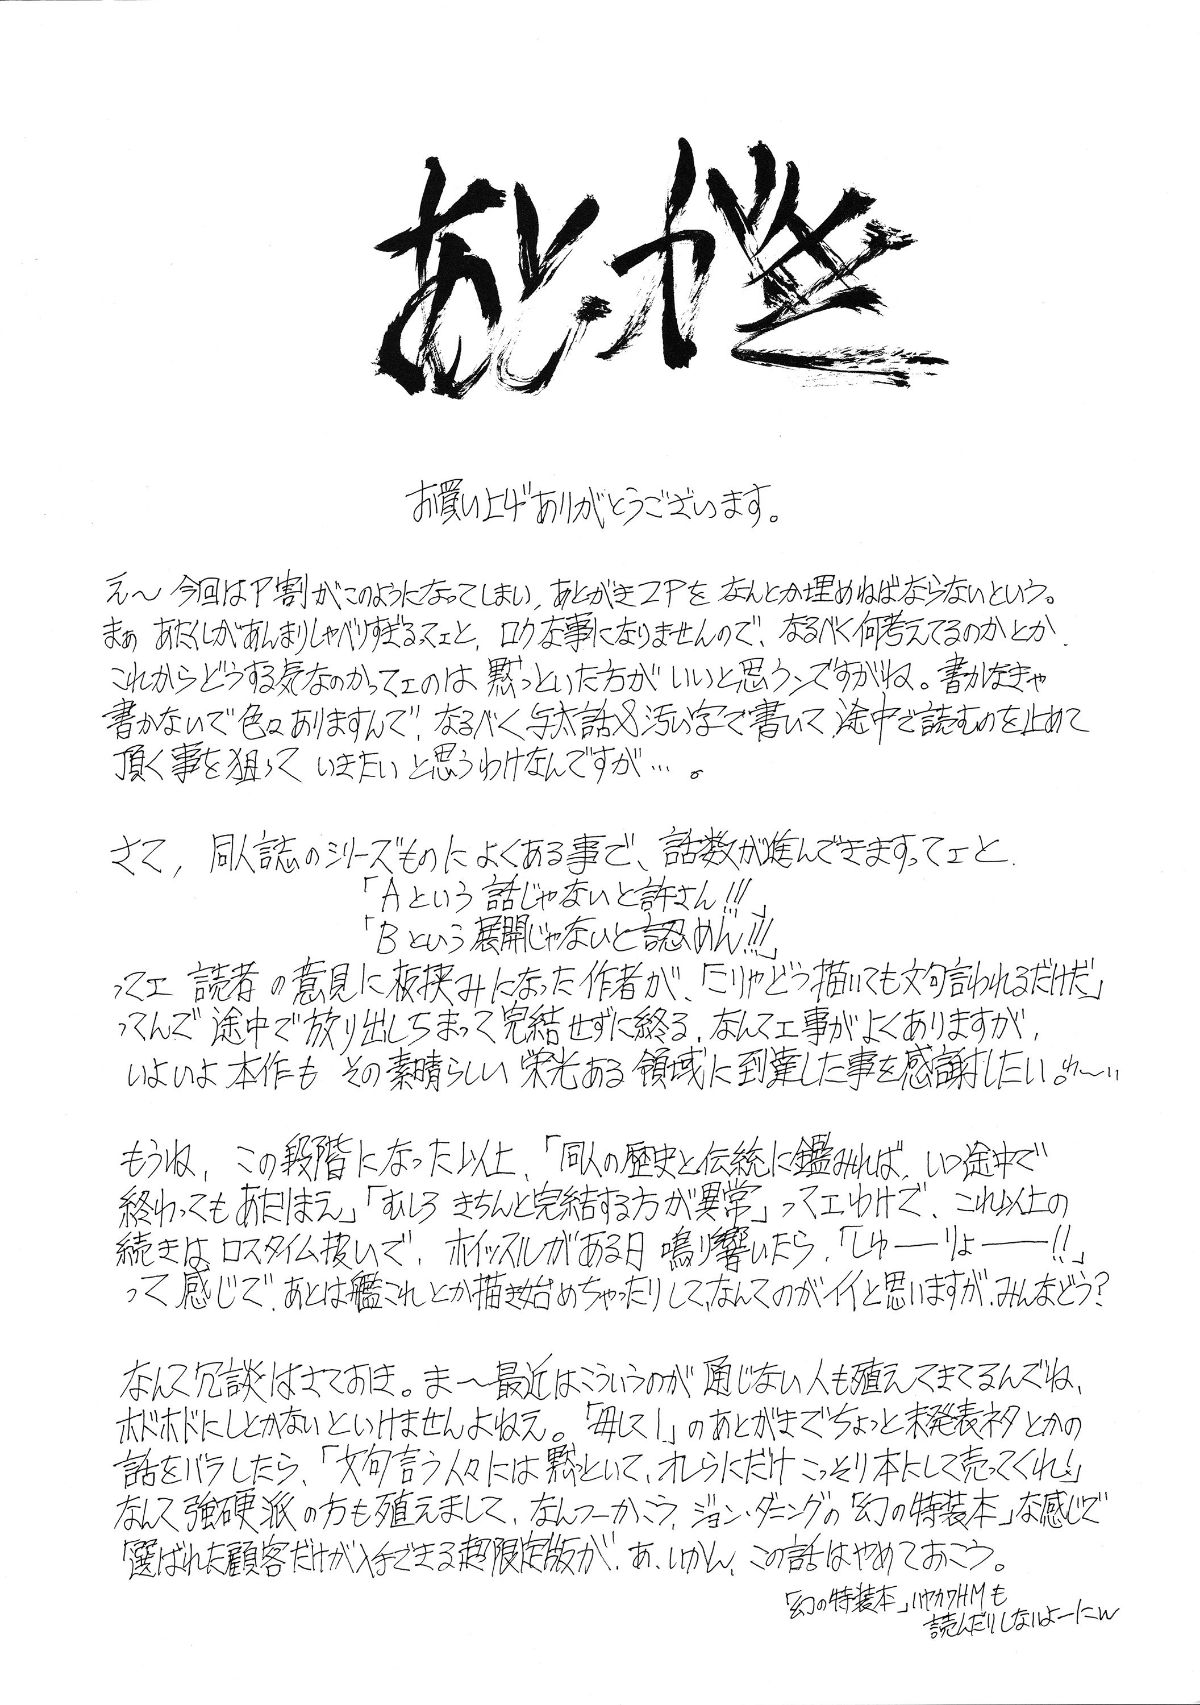 あとがき
お買い上げありがとうございます。
え〜今回はP割がこのようになってしまい、あとがき2Pをなんとか埋めねばならないという。
まぁあたくしがあんまりしゃべりすぎるってェと、ロクな事になりませんので、なるべく何考えてるのかとか、
これからどうする気なのかってェのは黙っといた方がいいと思うンですがね。書かなきゃ
書かないで色々ありますんで、なるべく与太話&汚い字で書いて途中で読むのを止めて
頂く事を狙っていきたいと思うわけなんですが…。
さて、同人誌のシリーズものによくある事で、話数が進んできますってェと、
「Aという話じゃないと許さん!!!」
「Bという展開じゃないと認めん!!!」
ってェ読者の意見に板挟みになった作者が、「こりゃどう描いても文句言われるだけだ」
ってんで途中で放り出しちまって完結せずに終る、なんてェ事がよくありますが、
いよいよ本作もその素晴らしい栄光ある領域に到達した事を感謝したい。わ〜い
もうね、この段階になった以上、「同人の歴史と伝統に鑑みれば、いつ途中で
終わってもあたりまえ」「むしろきちんと完結する方が異常」ってェわけで、これ以上の
続きはロスタイム扱いで、ホイッスルがある日鳴り響いたら、「しゅーりょー!!」
って感じで、あとは艦これとか描き始めちゃったりして、なんてのがイイと思いますが、みんなどう?
なんて冗談はさておき。ま〜最近はこういうのが通じない人も殖えてきてるんでね、
ホドホドにしとかないといけませんよねえ。「毎して1」のあとがきでちょっと未発表ネタとかの
話をバラしたら、「文句言う人々には黙っといて、オレらにだけこっそり本にして売ってくれ!」
なんて強硬派の方も殖えまして、なんつーかこう、ジョン・ダニングの「幻の特装本」な感じで
「選ばれた顧客だけが入手できる超限定版が、あ、いかん、この話はやめておこう。
「幻の特装本」ハヤカワHMも
読んだりしないよーにw